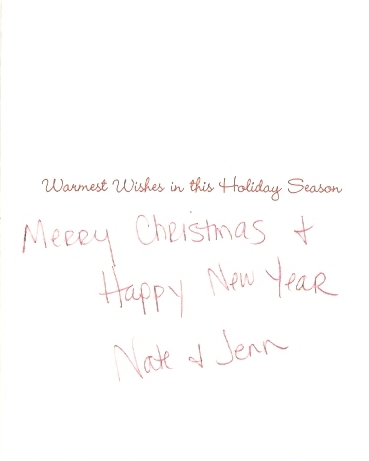 Warmest Wishes in this Holiday Season
Merry Christmas +
Happy New Year
Nate + Jenn